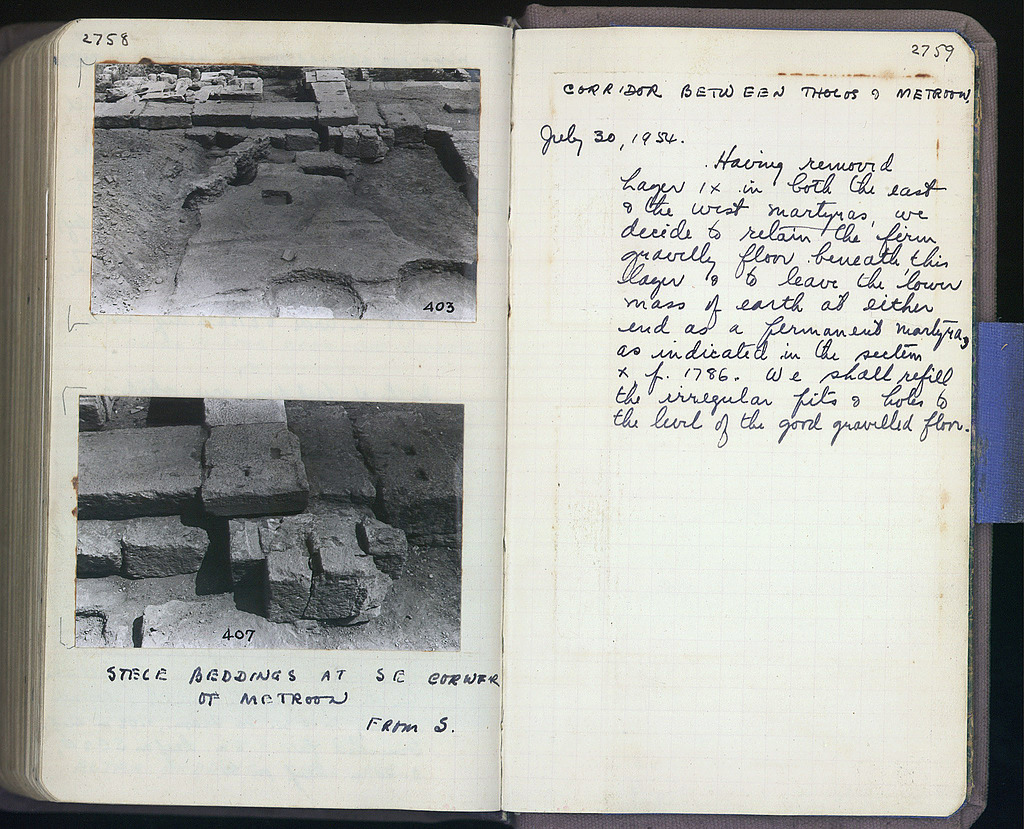 2758
403
407
STELE BEDDINGS AT SE CORNER
OF METROON
FROM S.
2759
CORRIDOR BETWEEN THOLOS & METROON
July 30, 1954.
Having removed
Layer IX in both the east
& the west martyras, we
decide to retain the firm
gravelly floor beneath this
layer & to leave the lower
mass of earth at either
end as a permanent martyras
as indicated in the section
x, p. 1786. We shall refill
the irregular pits & holes to
the level of the good gravelled floor.